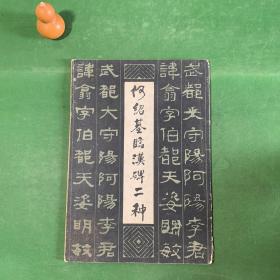 武都太守陽阿陽李君
諱翕字伯都天姿明敏
何紹基临漢碑二种
武都大守陽阿陽李君
諱翕字伯都天姿明敏